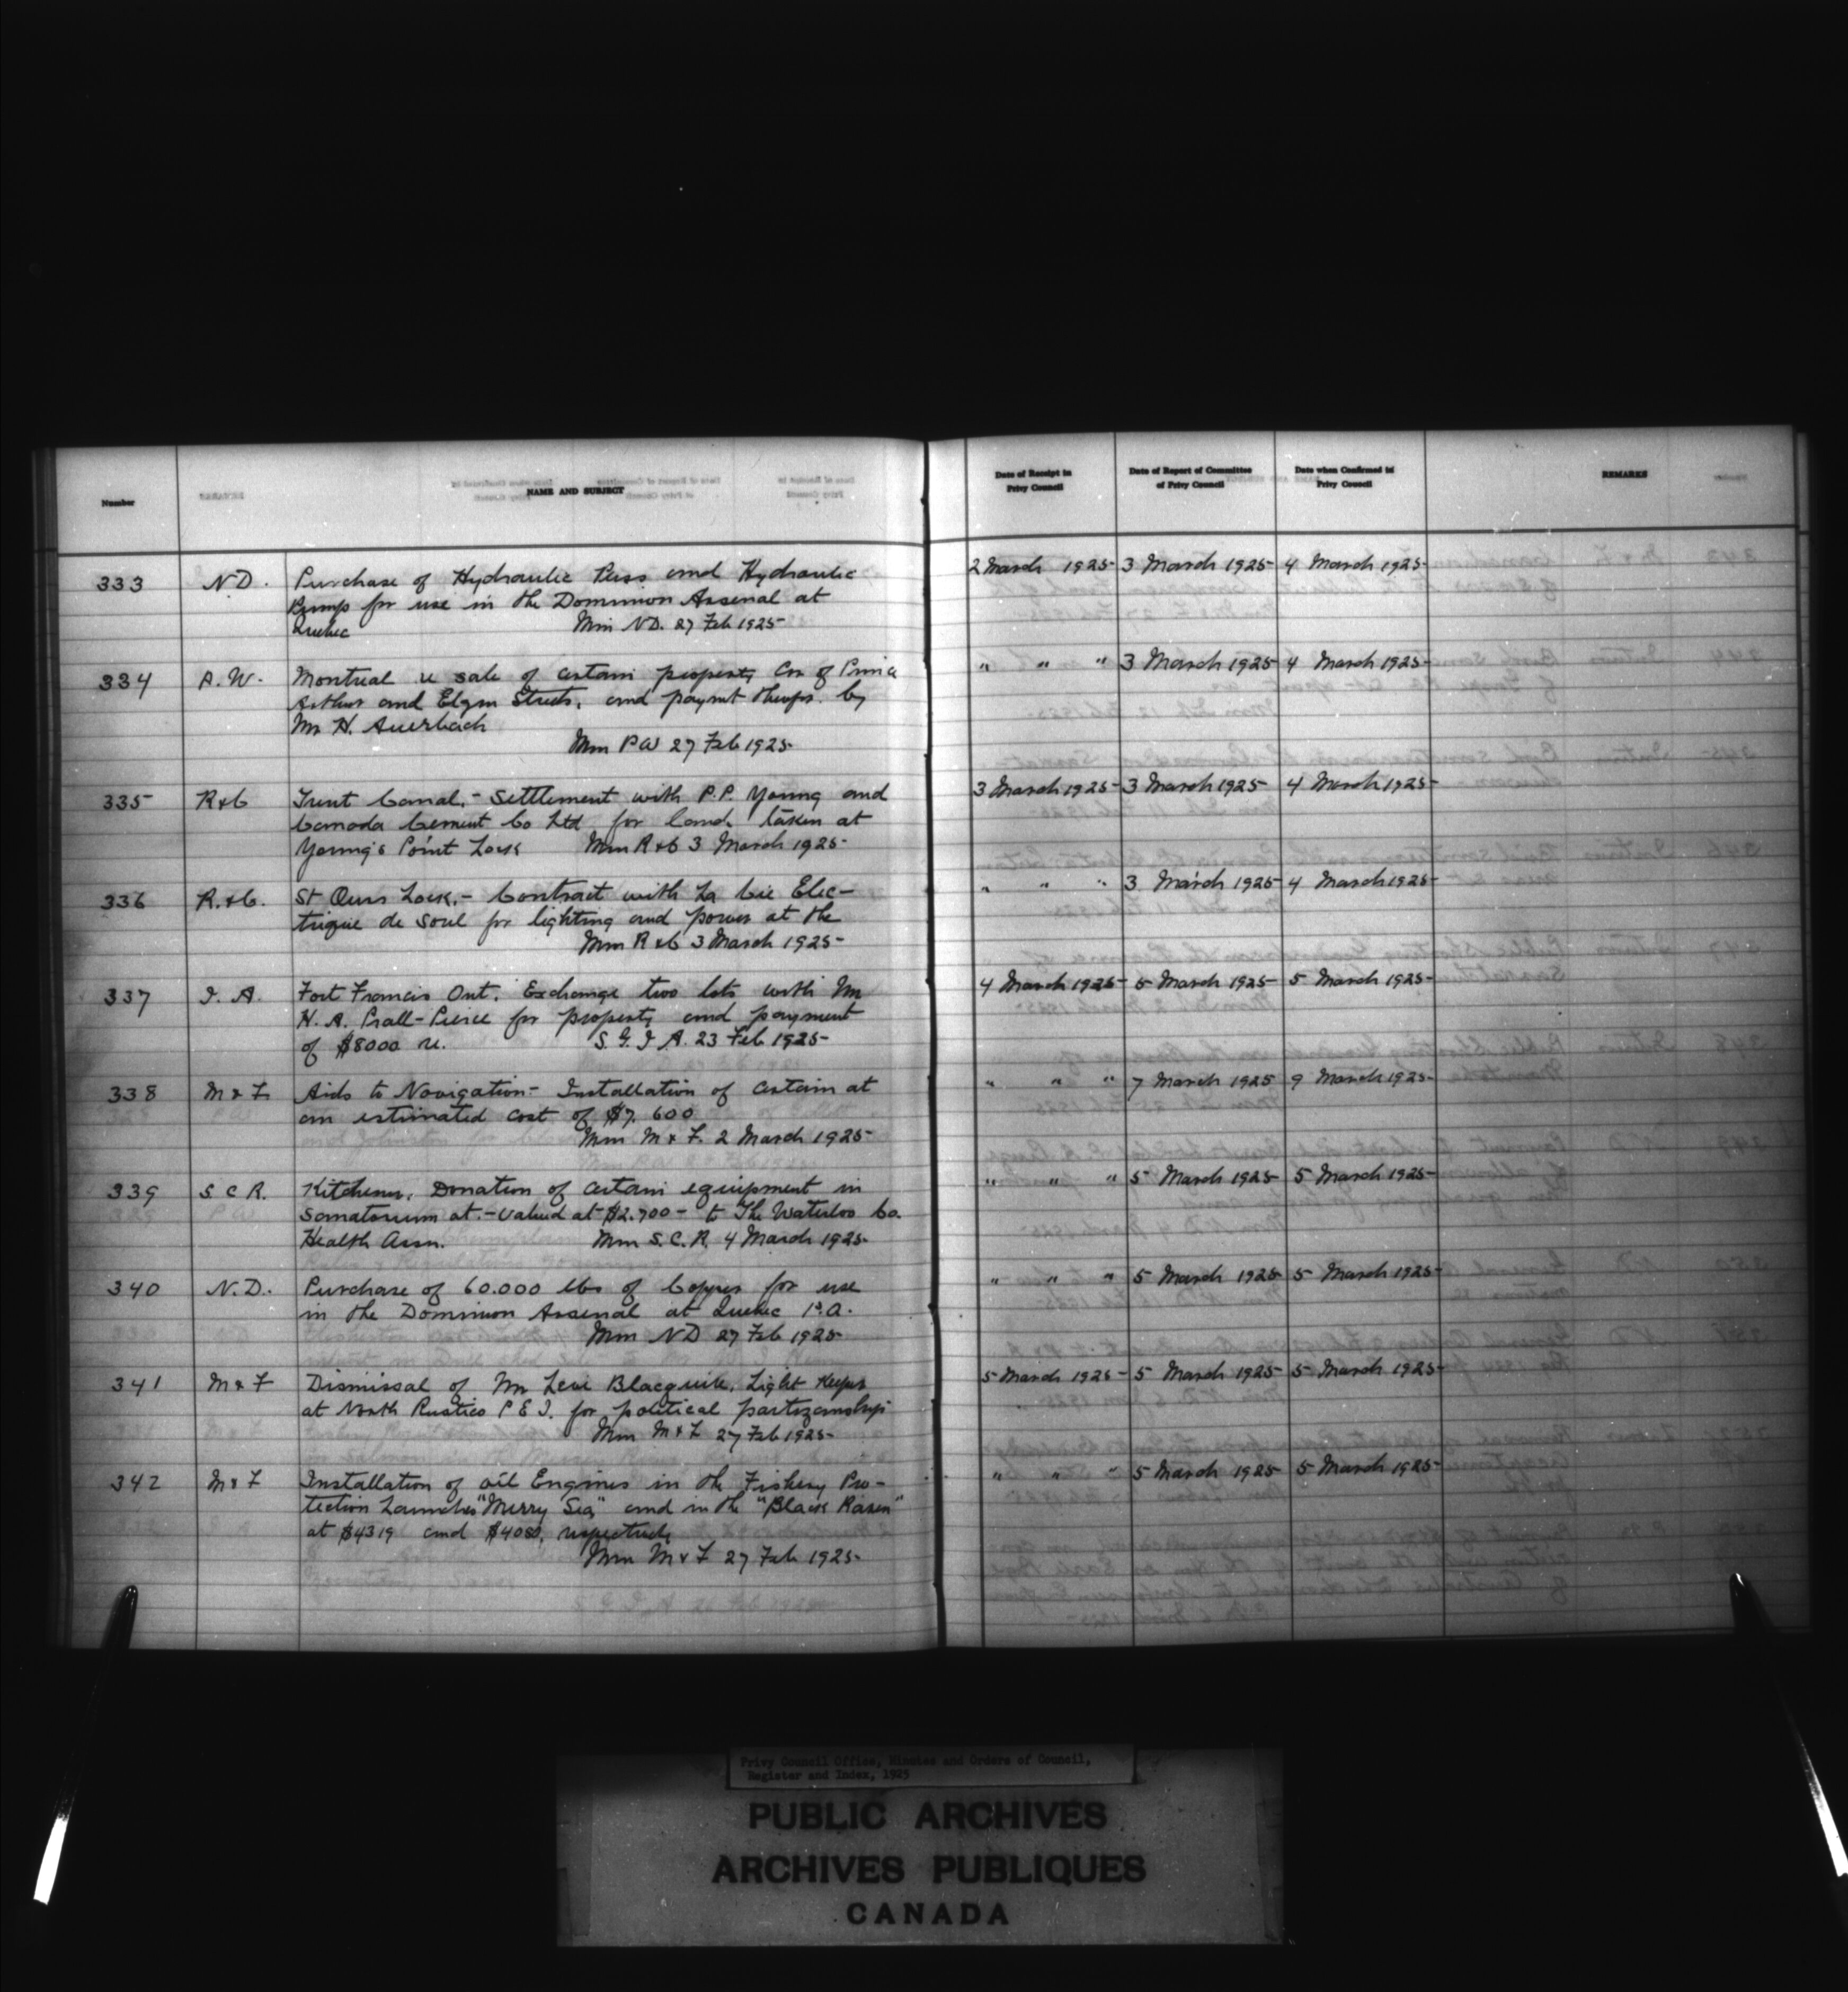 Number
NAME AND SUBJECT
Date of Receipt in
Privy Council
Date of Report of Committee
of Privy Council
Date when Confirmed in
Privy Council
REMARKS
333 N.D. Purchase of Hydraulic Press and Hydraulic 2 March 1925 3 March 1925 4 March 1925
Pump for use in the Dominion Arsenal at
Quebec Min N.D. 27 Feb 1925
334 P.W. Montreal re sale of certain property Cor of Prince " " " 3 March 1925 4 March 1925
Arthur and Elgin Streets, and paymt therefor. by
Mr H. Auerbach
Min P W 27 Feb 1925
335 R & C Trent Canal,- Settlement with P.P. Young and 3 March 1925 3 March 1925 4 March 1925
Canada Cement Co Ltd for land taken at
Young's Point Lock Min R & C 3 March 1925
336 R. & C. St Ours Lock,- Contract with La Cie Elec- " " " 3 March 1925 4 March 1925
trique de Sorel for lighting and power at the
Min R & C 3 March 1925
337 I. A. Fort Francis Ont. Exchange two lots with Mr 4 March 1925 5 March 1925 5 March 1925
H. A. Prall-Pierce for property and payment
of $8000 re. S. G. I A. 23 Feb 1925
338 M & F Aids to Navigation- Installation of certain at " " " 7 March 1925 9 March 1925
an estimated cost of $7.600
Min M & F. 2 March 1925
339 S C R. Kitchener, Donation of certain equipment in " " " 5 March 1925 5 March 1925
Sanatorium at.- valued at $2.700 - to The Waterloo Co.
Health Assn. Min S. C. R. 4 March 1925
340 N. D. Purchase of 60.000 lbs of Copper for use " " " 5 March 1925 5 March 1925
in the Dominion Arsenal at Quebec P.Q.
Min N D 27 Feb 1925
341 M & F Dismissal of Mr Levi Blacquire, Light Keeper 5 March 1925 5 March 1925 5 March 1925
at North Rustico P E I. for political partizanship
Min M & F 27 Feb 1925
342 M & F Installation of oil Engines in the Fishery Pro- " " " 5 March 1925 5 March 1925
tection Launches "Merry Sea" and in the "Black Raven"
at $4319 and $4080, respectively
Min M & F 27 Feb 1925
Privy Council Office, Minutes and Orders of Council,
Register and Index, 1925
PUBLIC ARCHIVES
ARCHIVES PUBLIQUES
CANADA